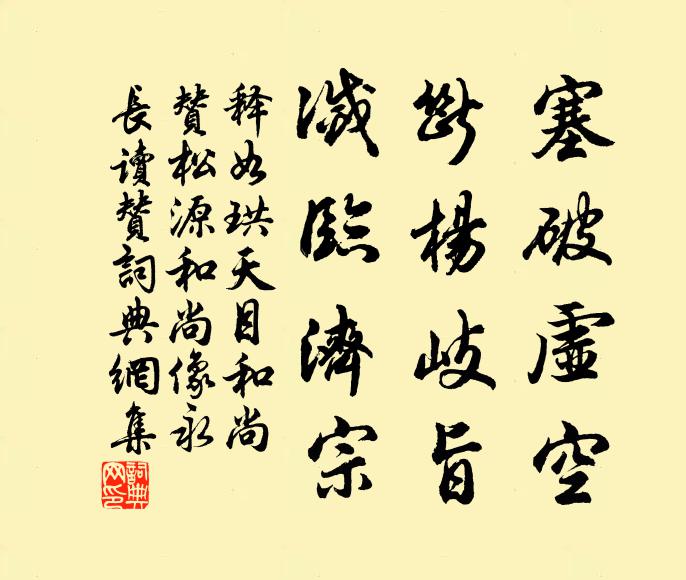 塞破虚空
断楊岐旨
滅臨濟宗
释如珙天目和尚
赞松源和尚像永
長讀赞詞典網集
詞典網印